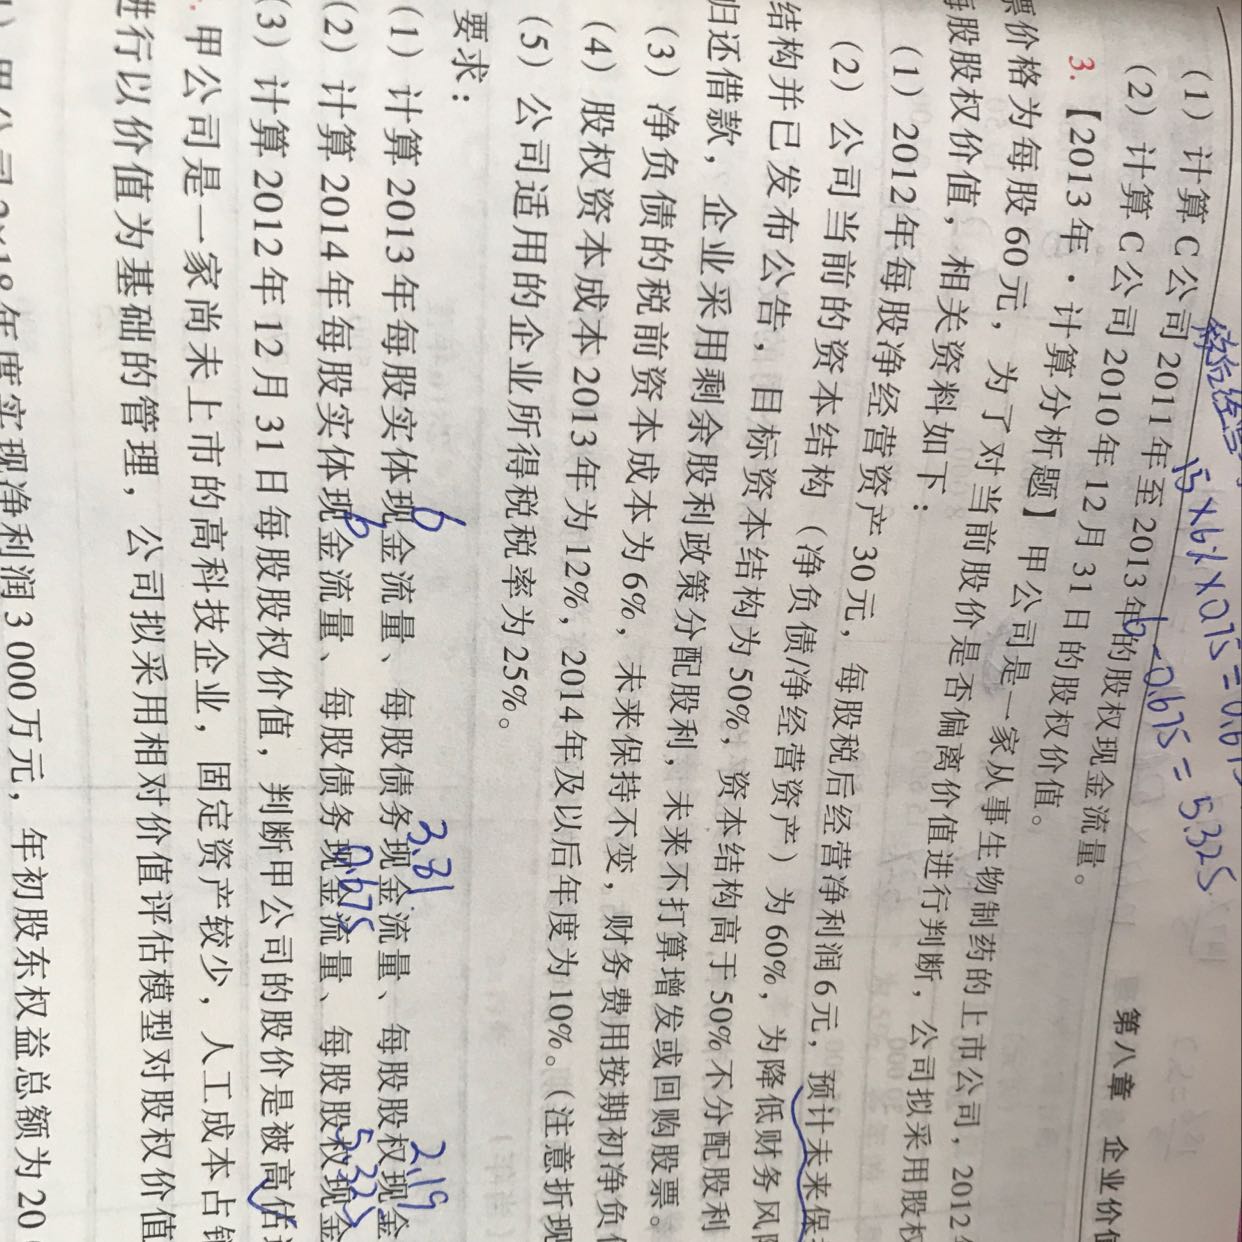 (1)计算C公司2011年至2013年的股权现金流量。
(2)计算C公司2010年12月31日的股权价值。
15×6%×0.75=0.675
6-0.675=5.325
第八章 企业价值
3.【2013年·计算分析题】甲公司是一家从事生物制药的上市公司，2012
票价格为每股60元，为了对当前股价是否偏离价值进行判断，公司拟采用股权
每股股权价值，相关资料如下：
(1)2012年每股净经营资产30元，每股税后经营净利润6元，预计未来保
(2)公司当前的资本结构（净负债/净经营资产）为60%，为降低财务风险
结构并已发布公告，目标资本结构为50%，资本结构高于50%不分配股利
归还借款，企业采用剩余股利政策分配股利，未来不打算增发或回购股票。
(3)净负债的税前资本成本为6%，未来保持不变，财务费用按期初净负债
(4)股权资本成本2013年为12%，2014年及以后年度为10%。(注意折现
(5)公司适用的企业所得税税率为25%。
要求：
(1)计算2013年每股实体现金流量、每股债务现金流量、每股股权现金
6 3.81 2.19
(2)计算2014年每股实体现金流量、每股债务现金流量、每股股权现金
6 0.675 5.325
(3)计算2012年12月31日每股股权价值，判断甲公司的股价是被高估
甲公司是一家尚未上市的高科技企业，固定资产较少，人工成本占销
进行以价值为基础的管理，公司拟采用相对价值评估模型对股权价值
甲公司2×18年度实现净利润3 000万元，年初股东权益总额为20